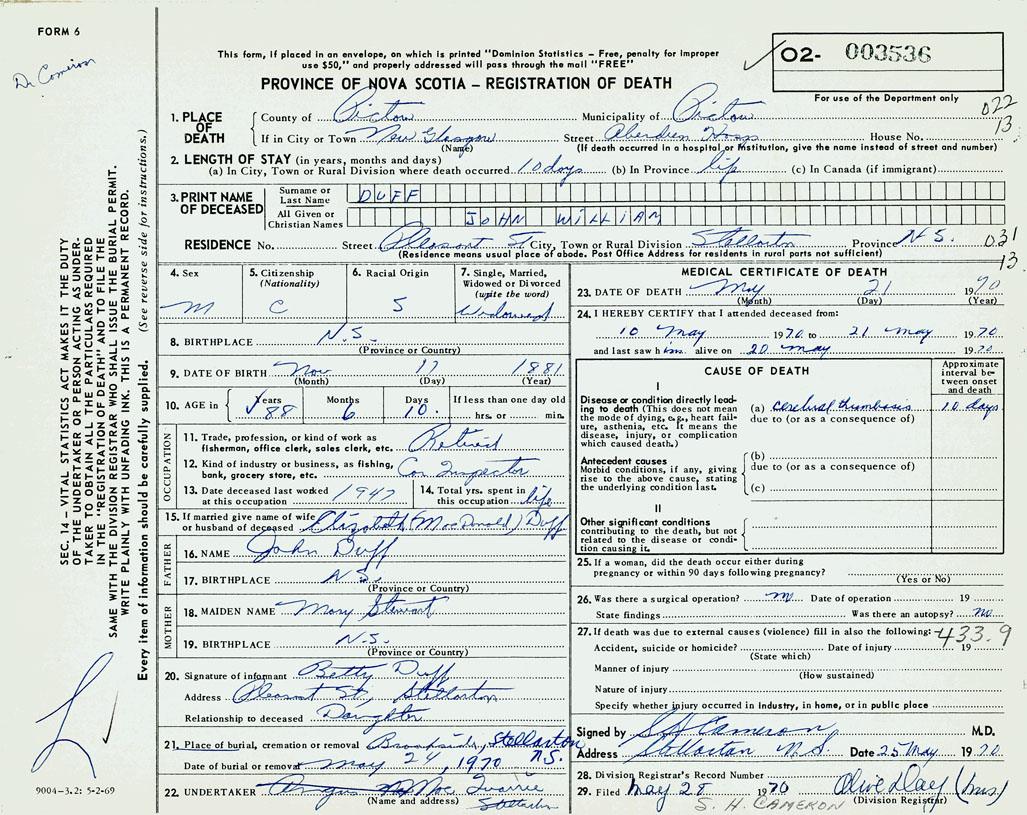 FORM 6
Dr Cameron
This form, if placed in an envelope, on which is printed "Dominion Statistics – Free, penalty for improper
use $50," and properly addressed will pass through the mail "FREE"
O2- 003536
For use of the Department only
PROVINCE OF NOVA SCOTIA – REGISTRATION OF DEATH
022
13
1. PLACE OF DEATH County of Pictou Municipality of Pictou
If in City or Town New Glasgow Street Aberdeen Hosp House No.
(Name) (If death occurred in a hospital or institution, give the name instead of street and number)
2. LENGTH OF STAY (in years, months and days)
(a) In City, Town or Rural Division where death occurred 10 days (b) In Province life (c) In Canada (if immigrant)
3. PRINT NAME OF DECEASED Surname or Last Name DUFF
All Given or Christian Names JOHN WILLIAM
RESIDENCE No. Street Pleasant St City, Town or Rural Division Stellarton Province N.S. 031
(Residence means usual place of abode. Post Office Address for residents in rural parts not sufficient) 13
4. Sex M
5. Citizenship (Nationality) C
6. Racial Origin S
7. Single, Married, Widowed or Divorced (write the word) Widowed
8. BIRTHPLACE N.S.
(Province or Country)
9. DATE OF BIRTH Nov 11 1881
(Month) (Day) (Year)
10. AGE in Years 88 Months 6 Days 10 If less than one day old
hrs. or min.
OCCUPATION
11. Trade, profession, or kind of work as
fisherman, office clerk, sales clerk, etc. Retired
12. Kind of industry or business, as fishing,
bank, grocery store, etc. Car Inspector
13. Date deceased last worked at this occupation 1947
14. Total yrs. spent in this occupation life
15. If married give name of wife
or husband of deceased Elizabeth (MacDonald) Duff
FATHER
16. NAME John Duff
17. BIRTHPLACE N.S.
(Province or Country)
MOTHER
18. MAIDEN NAME Mary Stewart
19. BIRTHPLACE N.S.
(Province or Country)
20. Signature of informant Betty Duff
Address Pleasant St, Stellarton
Relationship to deceased Daughter
21. Place of burial, cremation or removal Brookside, Stellarton
N.S.
Date of burial or removal May 24, 1970
22. UNDERTAKER Angus
(Name and address) Stellarton
MEDICAL CERTIFICATE OF DEATH
23. DATE OF DEATH May 21 1970
(Month) (Day) (Year)
24. I HEREBY CERTIFY that I attended deceased from:
10 May 1970 to 21 May 1970
and last saw him alive on 20 May 1970
CAUSE OF DEATH
Approximate interval between onset and death
I
Disease or condition directly lead-
ing to death (This does not mean
the mode of dying, e.g., heart fail-
ure, asthenia, etc. It means the
disease, injury, or complication
which caused death.)
(a) cerebral thrombosis 10 days
due to (or as a consequence of)
Antecedent causes
Morbid conditions, if any, giving
rise to the above cause, stating
the underlying condition last.
(b)
due to (or as a consequence of)
(c)
II
Other significant conditions
contributing to the death, but not
related to the disease or condi-
tion causing it.
25. If a woman, did the death occur either during
pregnancy or within 90 days following pregnancy?
(Yes or No)
26. Was there a surgical operation? no Date of operation 19
State findings Was there an autopsy? no
27. If death was due to external causes (violence) fill in also the following: 433.9
Accident, suicide or homicide? Date of injury 19
(State which)
Manner of injury
(How sustained)
Nature of injury
Specify whether injury occurred in industry, in home, or in public place
Signed by S H Cameron M.D.
Address Stellarton N.S. Date 25 May 1970
28. Division Registrar's Record Number
29. Filed May 28 1970 Olive Day (Mrs)
S. H. CAMERON (Division Registrar)
SEC. 14 – VITAL STATISTICS ACT MAKES IT THE DUTY
OF THE UNDERTAKER OR PERSON ACTING AS UNDER-
TAKER TO OBTAIN ALL THE PARTICULARS REQUIRED
IN THE "REGISTRATION OF DEATH" AND TO FILE THE
SAME WITH THE DIVISION REGISTRAR WHO SHALL ISSUE THE BURIAL PERMIT.
WRITE PLAINLY WITH UNFADING INK. THIS IS A PERMANENT RECORD.
Every item of information should be carefully supplied. (See reverse side for instructions.)
9004-3.2: 5-2-69